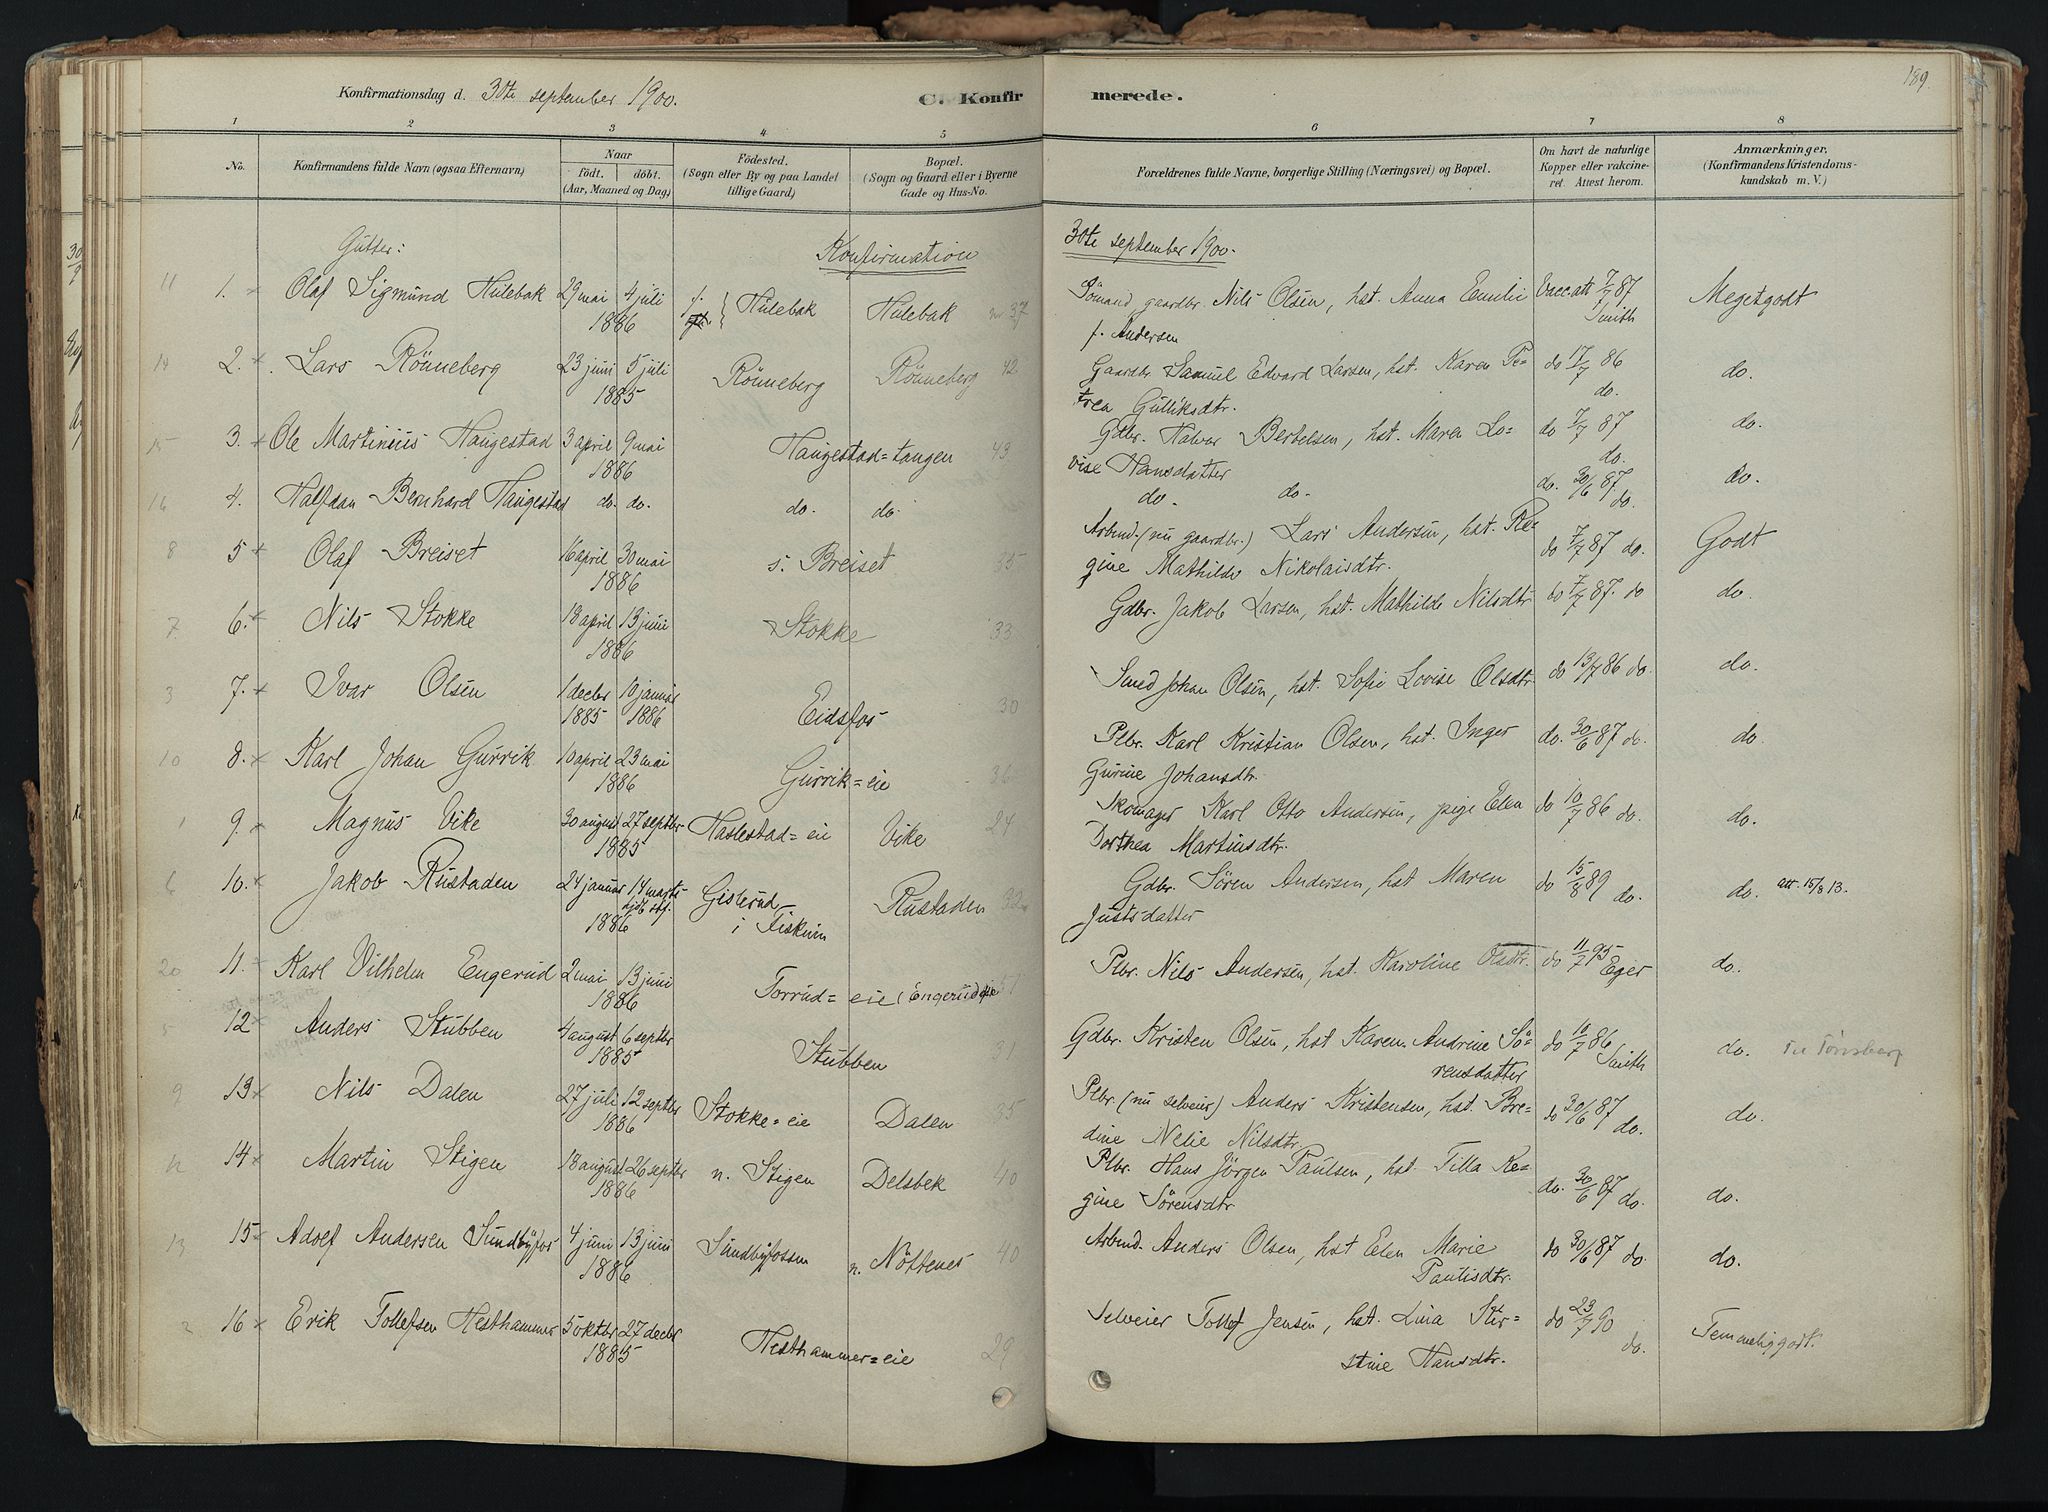 Konfirmationsdag d. 30te september 1900. C. Konfirmerede. 189.
1 2 3 4 5 6 7 8
No. Konfirmandens fulde Navn (ogsaa Efternavn) Naar födt. döbt. (Aar, Maaned og Dag) Födested. (Sogn eller By og paa Landet tillige Gaard) Bopæl. (Sogn og Gaard eller i Byerne Gade og Hus-No. Forældrenes fulde Navne, borgerlige Stilling (Næringsvei) og Bopæl. Om havt de naturlige Kopper eller vakcineret. Attest herom. Anmærkninger. (Konfirmandens Kristendomskundskab m. V.)
Gutter: Konfirmation 30te september 1900.
11 1. Olaf Sigmund Hulebak 29 mai 4 juli 1886 Hulebak Hulebak 37 Sömand gaardbr. Nils Olsen, hst. Anna Emilie f. Andersen Vacc. att 7/7 87 Smith Megetgodt
14 2. Lars Rönneberg 23 juni 5 juli 1885 Rönneberg Rönneberg 42 Gaardbr. Samuel Edvard Larsen, hst. Karen Petrea Gulliksdtr. do 17/7 86 do. do.
15 3. Ole Martinius Haugestad 3 april 9 mai 1886 Haugestad=tangen 43 Gdbr. Halvor Bertelsen, hst. Maren Lovise Hansdatter do 7/7 87 do. do.
16 4. Halfdan Bernhard Haugestad do. do. do. do. do. do. do. 30/6 87 do. do.
8 5 Olaf Breiset 16 april 30 mai 1886 s. Breiset 35 Arbmd. (nu gaardbr.) Lars Andersen, hst. Regine Mathilde Nikolaisdtr. do 7/7 87 do. Godt
7 6. Nils Stokke 18 april 13 juni 1886 Stokke 33 Gdbr. Jakob Larsen, hst. Mathilde Nilsdtr. do 7/7 87. do do.
3 7. Ivar Olsen 1 decbr 1885 10 januar 1886 Eidsfos 30 Smed Johan Olsen, hst. Sofie Lovise Olsdtr. do 13/7 86 do. do.
10 8. Karl Johan Gurrik 10 april 23 mai 1886 Gurrik=eie 36 Plbr. Karl Kristian Olsen, hst. Inger Gurine Johansdtr. do. 30/6 87 do. do.
1 9. Magnus Vike 30 august 27 septbr 1885 Haslestad=eie Vike 24 Skomager Karl Otto Andersen, pige Elen Dorthea Martinsdtr. do 10/7 86 do. do.
6 10. Jakob Rustaden 24 januar 14 marts 1886 Gislerud i Fiskum Rustaden 32 Gdbr. Sören Andersen, hst Maren Justsdatter do 15/8 89 do. do. att. 15/8 13.
20 11. Karl Vilhelm Engerud 2 mai 13 juni 1886 Torrud=eie (Engerudeie 51 Plbr. Nils Andersen, hst. Karoline Olsdtr. do 11/7 95 Eger do.
5 12 Anders Stubben 4 august 6 septbr 1885 Stubben 31 Gdbr. Kristen Olsen, hst Karen Andrine Sörensdatter do 10/7 86 Smith do. Til Tønsberg
9 13 Nils Dalen 27 juli 12 septbr 1886 Stokke=eie Dalen 35 Plbr. (nu selveier) Anders Kristensen, hst. Bredine Nelie Nilsdtr. do 30/6 87 do. do.
12 14 Martin Stigen 18 august 26 septbr 1886 n. Stigen Delsbek 40 Plbr. Hans Jörgen Paulsen, hst. Tilla Regine Sörensdtr do. 30/6 87 do. do.
13 15 Adolf Andersen Sundbyfos 4 juni 13 juni 1886 Sundbyfossen n. Nöttenes 40 Arbmd. Anders Olsen, hst Elen Marie Paulisdtr. do 30/6 87 do. do.
2 16 Erik Tollefsen Hesthammer 5 oktbr 27 decbr 1885 Hesthammer=eie 29 Selveier Tollef Jensen, hst. Lina Kirstine Hansdtr. do 23/7 90 do. Temmeliggodt.